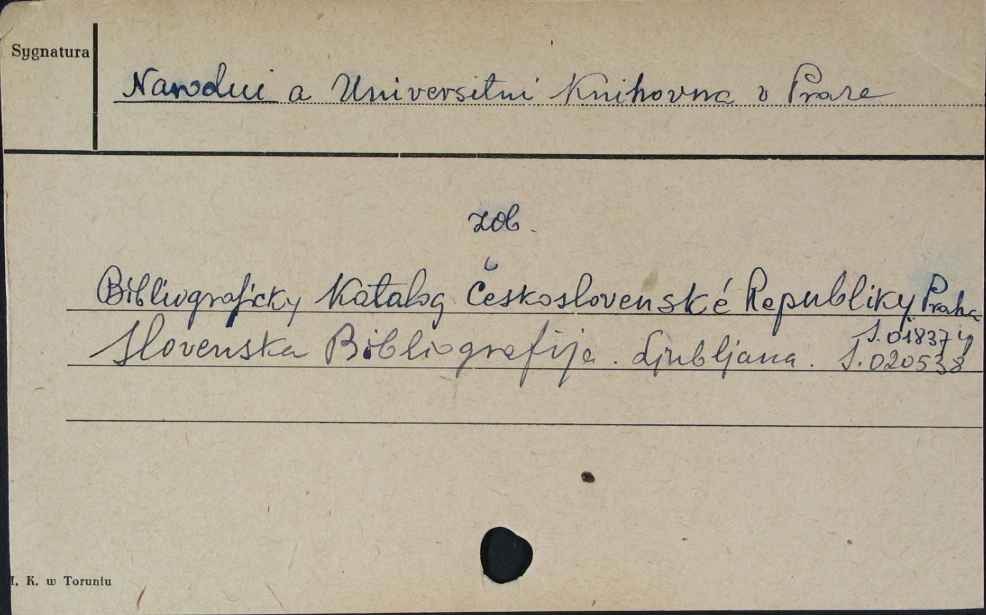 Sygnatura
Narodni a Universitni Knihovna v Praze
zob.
Bibliograficky Katalog Československé Republiky Praha
S. 018374
Slovenska Bibliografija. Ljubljana. S. 020538
I. K. w Toruniu